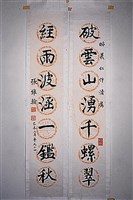 破雲山湧千螺翠
經雨波涵一鑑秋
張維翰